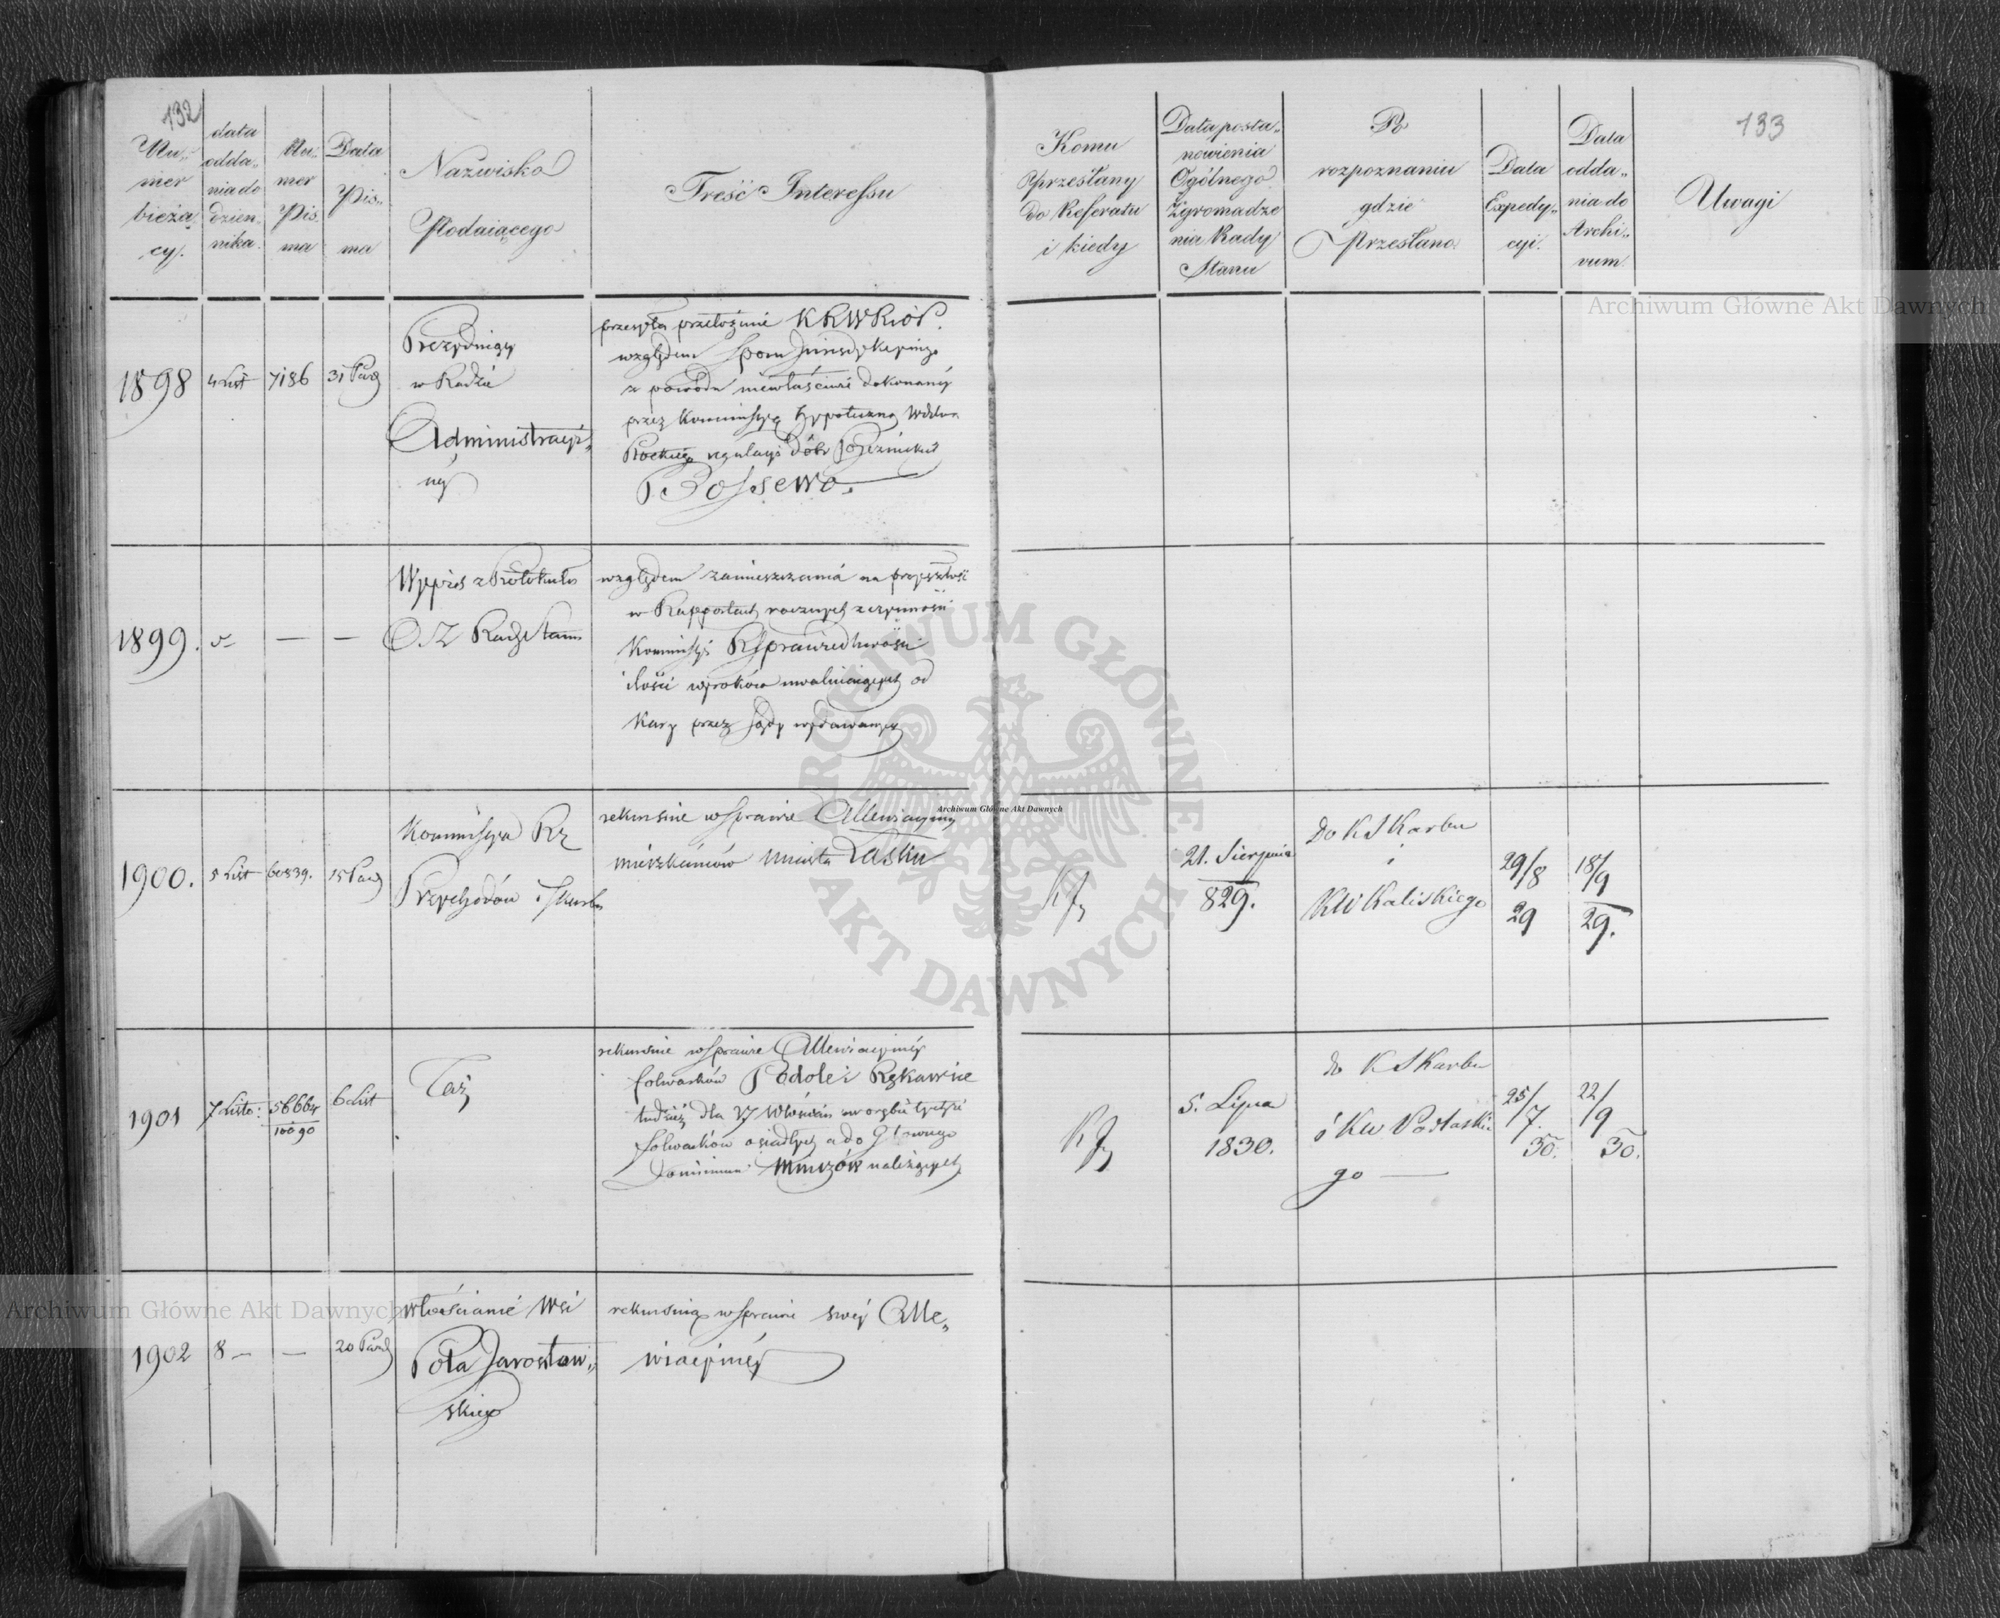 132
Nu-
mer
bieżą
cy.
data
odda-
nia do
dzien-
nika.
Nu-
mer
Pis
ma
Data
Pis-
ma
Nazwisko
Podaiącego
Treść Interessu
1898
4 List
7186
31 Paźd
Prezyduiący
w Radzie
Administracyi-
ney
przesyła przełożenie KRWRiOP.
względem sporu Jurisdykcyinego
z powodu niewłaściwie dokonaney
przez Kommissyą hypoteczną Wdztwa
Płockiego regulacyi dóbr
Bossewo.
1899.
5–
—
—
Wypis z Protokułu
O. Z. Rady Stanu
względem zamieszczania na przyszłość
w Rapportach rocznych z czynności
Kommissyi RSprawiedliwości
ilości wyroków uwalniaiących od
Kary przez Sądy wydawanych
1900.
5 List
60839.
15 Paźd
Kommissya Rz
Przychodów i Skarbu
rekursuie w sprawie Allewiacyiney
mieszkańców Miasta Łasku
1901
7 Listo:
56664
10090
6 List
Taż
rekursuie w sprawie Allewiacyiney
folwarków Podole i Rękawice
tudzież dla 27 Włościan w obrębie tychże
folwarków osiadłych a do Głównego
Dominium należących
1902
8 —
—
20 Paźd
Włościanie Wsi
Pola Jarosław-
skiego
rekursuią w sprawie swey Alle-
wiacyiney
133
Komu
Przesłany
do Referatu
i kiedy
Data posta-
nowienia
Ogólnego
Zgromadze
nia Rady
Stanu
Po
rozpoznaniu
gdzie
Przesłano
Data
Expedy-
cyi.
Data
odda-
nia do
Archi-
vum.
Uwagi
21. Sierpnia
829.
Do K Skarbu
i
KW Kaliskiego
29/8
29
18/9
29.
5. Lipca
1830.
do K Skarbu
i KW Podlaskie
go —
25/7.
30.
22/9
30.
Archiwum Główne Akt Dawnych
Archiwum Główne Akt Dawnych
ARCHIWUM GŁÓWNE
AKT DAWNYCH
Archiwum Główne Akt Dawnych